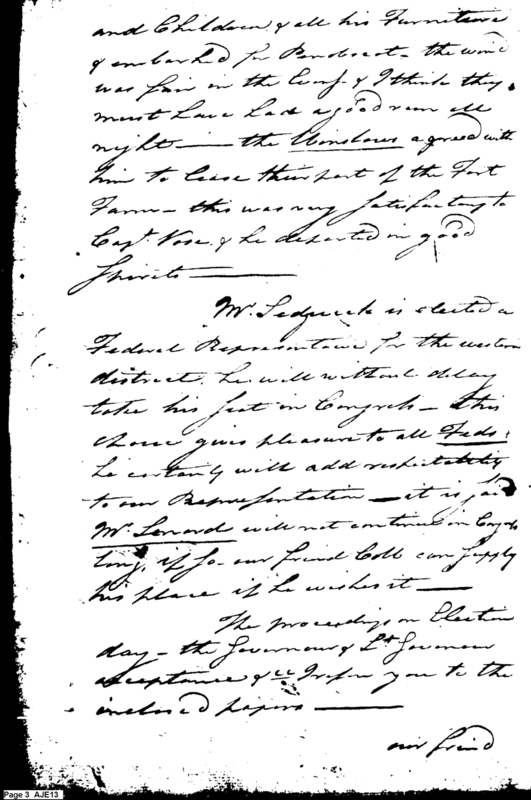 and Children & all his Furniture
& embarked for Penobscot – the wind
was fair in the Eveng & I think they
must have had a good run all
night — the Winslows agreed with
him to lease their part of the Fort
Farm – this was very satisfactory to
Capt. Vose & he departed in good
Spirits —
Mr. Sedgwick is elected a
Federal Representative for the western
district, he will without delay
take his seat in Congress – this
choice gives pleasure to all Feds:
he certainly will add respectability
to our Representation – it is said
Mr. Lenard will not continue in Congress
long, if so our friend Cobb can supply
his place if he wishes it —
The proceedings on Election
day – the Governour & Lt. Governour
acceptance &cc I refer you to the
inclosed papers —
our friend
Page 3 AJE13